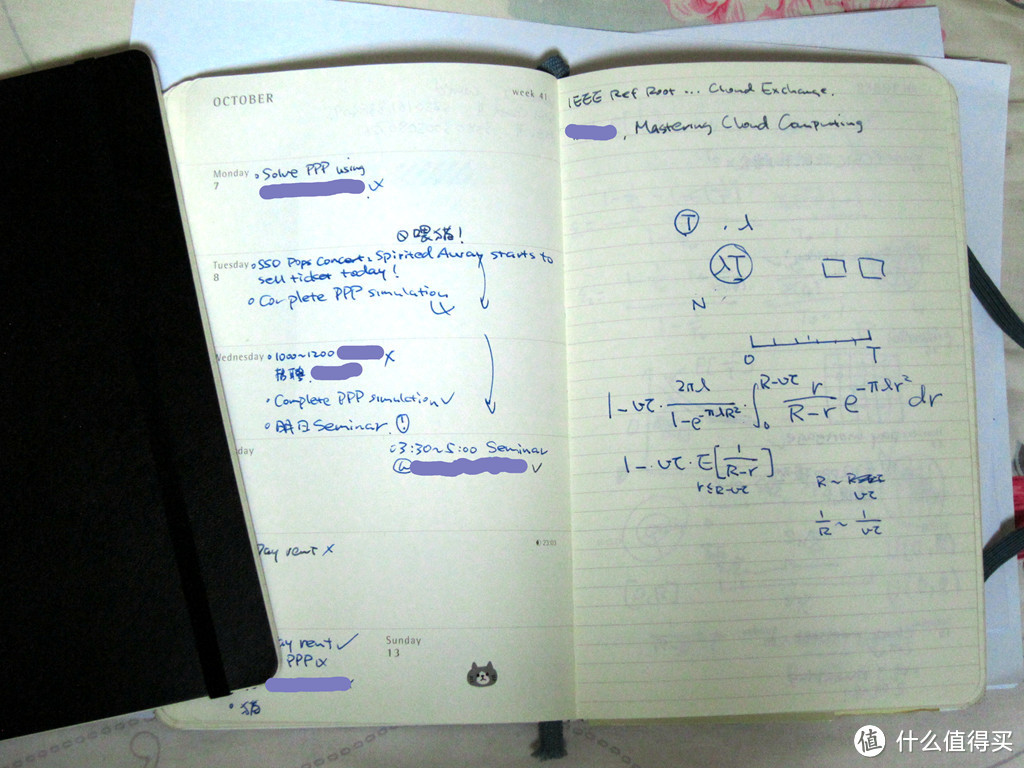 OCTOBER
week 41
Monday
7
Solve PPP using
x
喂猫!
Tuesday
8
SSO Pops Concert. Spirited Away starts to
sell ticket today!
Complete PPP simulation
Wednesday
1000~1200
x
招聘
Complete PPP simulation ✓
明日 Seminar.
day
3:30~5:00 Seminar
@ ✓
Pay rent x
2103
ay rent ✓
PPP x
猫
Sunday
13
IEEE Ref Root ... Cloud Exchange.
, Mastering Cloud Computing
T . λ
λT
N
0 T
1-vτ · 2πλ / (1-e^{-πλR²}) · ∫₀^{R-vτ} r/(R-r) e^{-πλr²} dr
1-vτ · E[1/(R-r)]
r≤R-vτ
R ~ vτ
1/R ~ 1/vτ
值 什么值得买